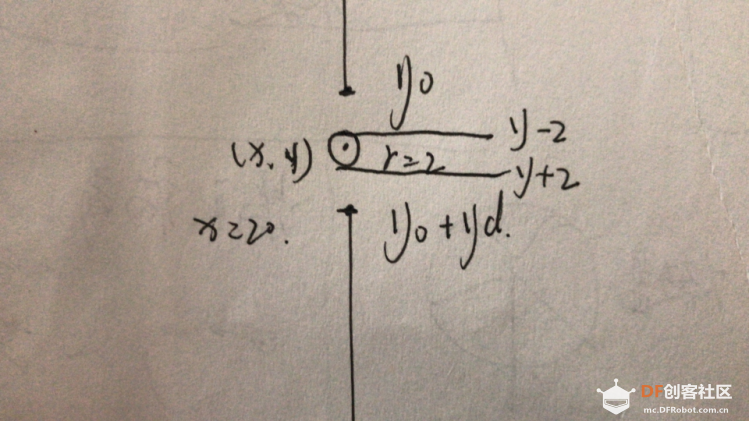 y0
y-2
(x, y) r=2
y+2
x=20.
y0+yd.
DF创客社区
mc.DFRobot.com.cn